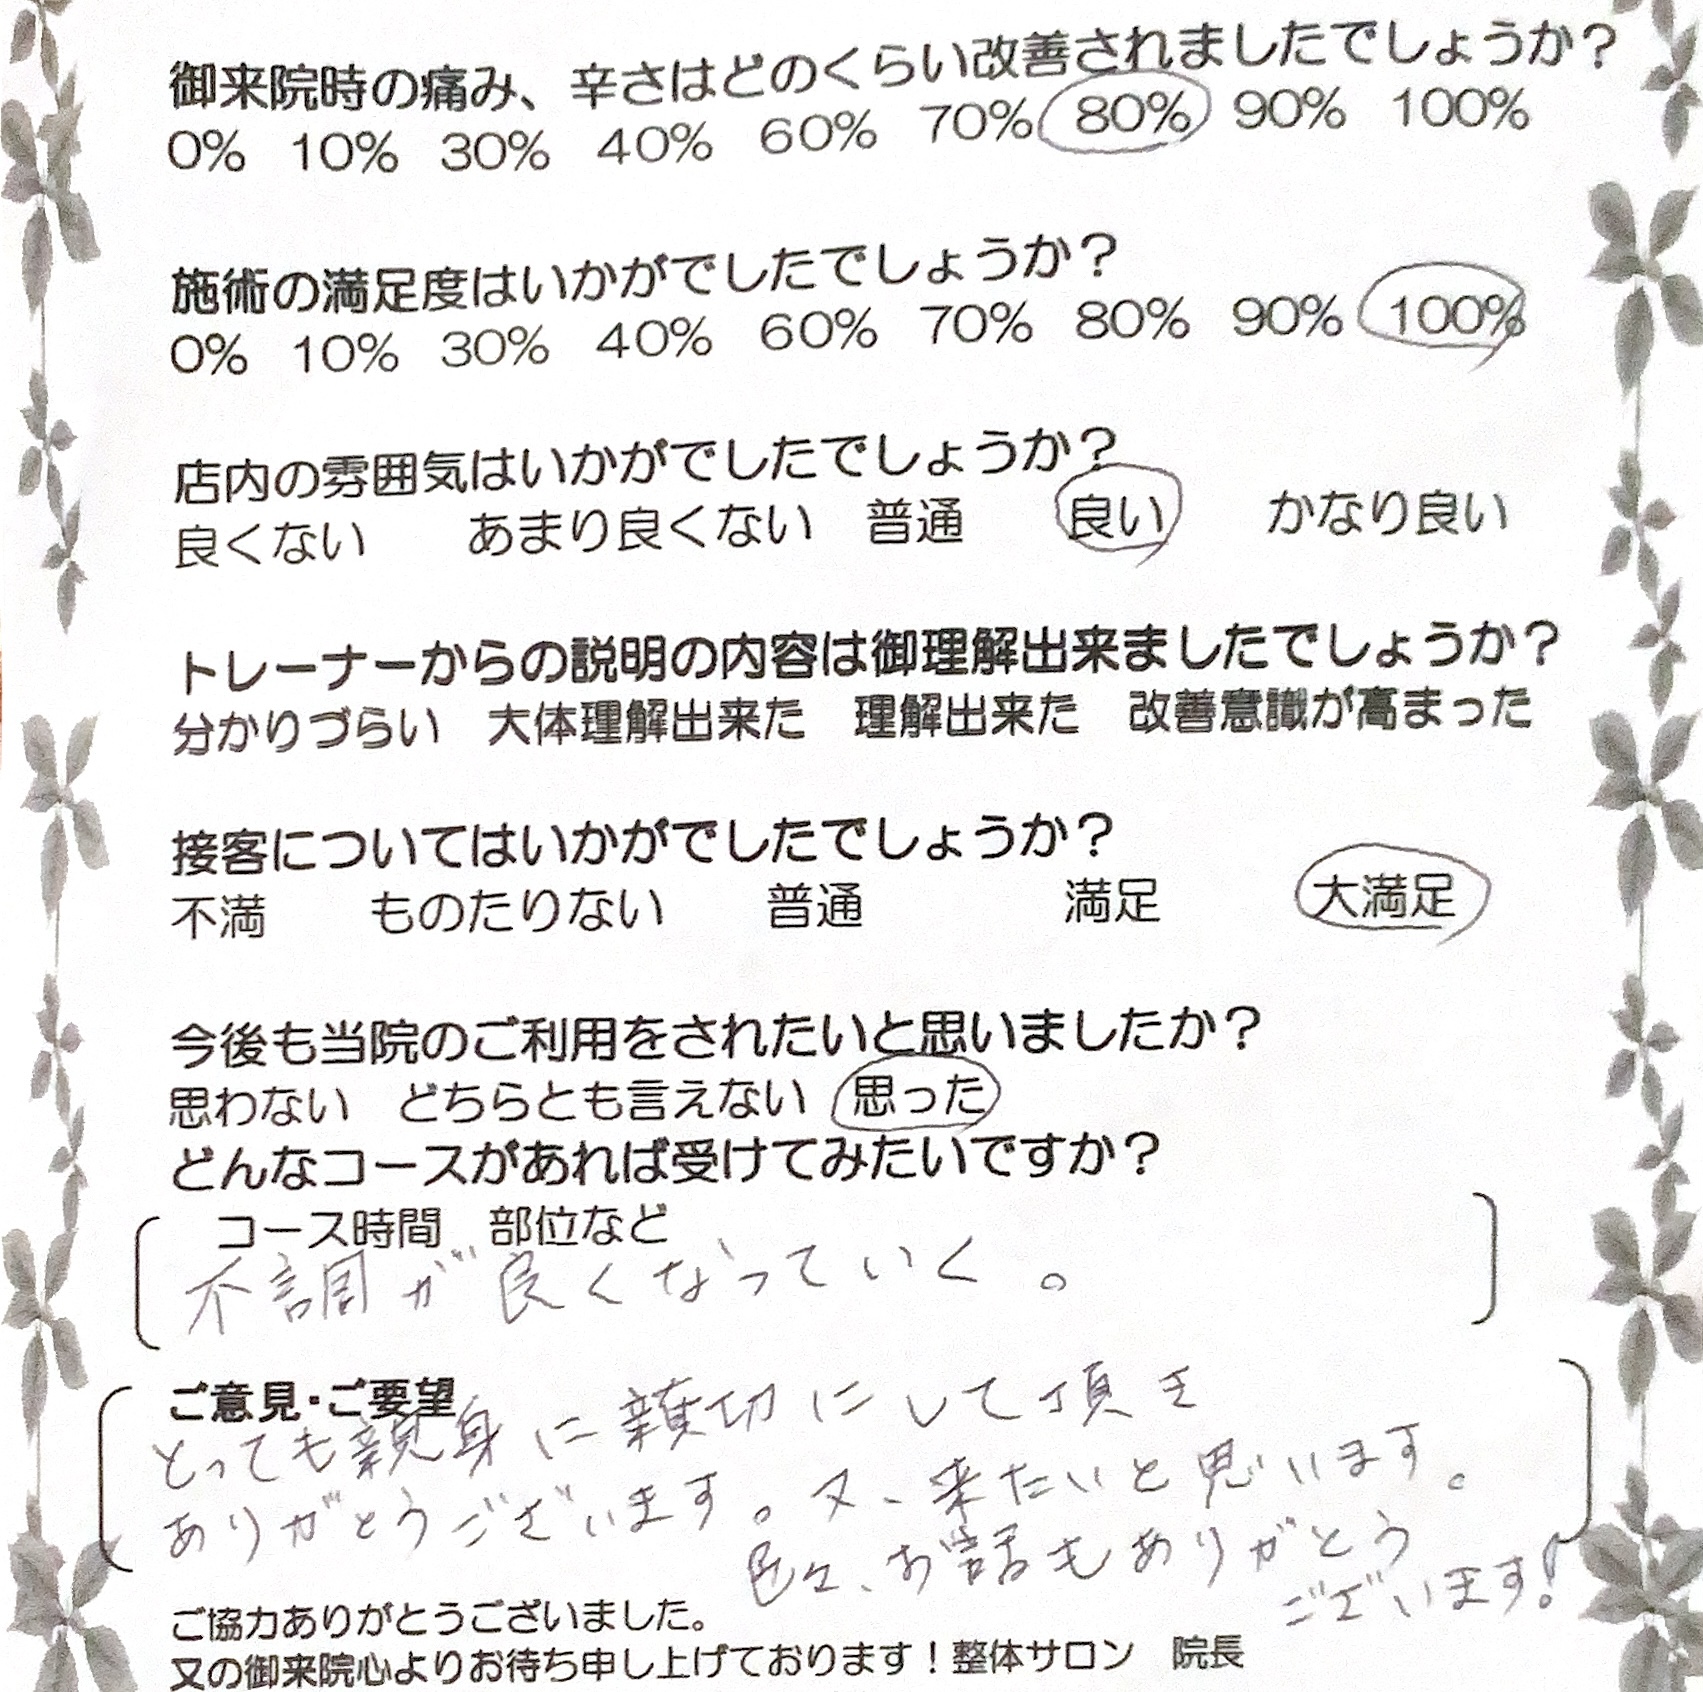 御来院時の痛み、辛さはどのくらい改善されましたでしょうか？
0% 10% 30% 40% 60% 70% 80% 90% 100%
施術の満足度はいかがでしたでしょうか？
0% 10% 30% 40% 60% 70% 80% 90% 100%
店内の雰囲気はいかがでしたでしょうか？
良くない あまり良くない 普通 良い かなり良い
トレーナーからの説明の内容は御理解出来ましたでしょうか？
分かりづらい 大体理解出来た 理解出来た 改善意識が高まった
接客についてはいかがでしたでしょうか？
不満 ものたりない 普通 満足 大満足
今後も当院のご利用をされたいと思いましたか？
思わない どちらとも言えない 思った
どんなコースがあれば受けてみたいですか？
コース時間 部位など
不調が良くなっていく。
ご意見・ご要望
とっても親身に親切にして頂き
ありがとうございます。又、来たいと思います。
色々、お話もありがとう
ございます♪
ご協力ありがとうございました。
又の御来院心よりお待ち申し上げております！整体サロン 院長